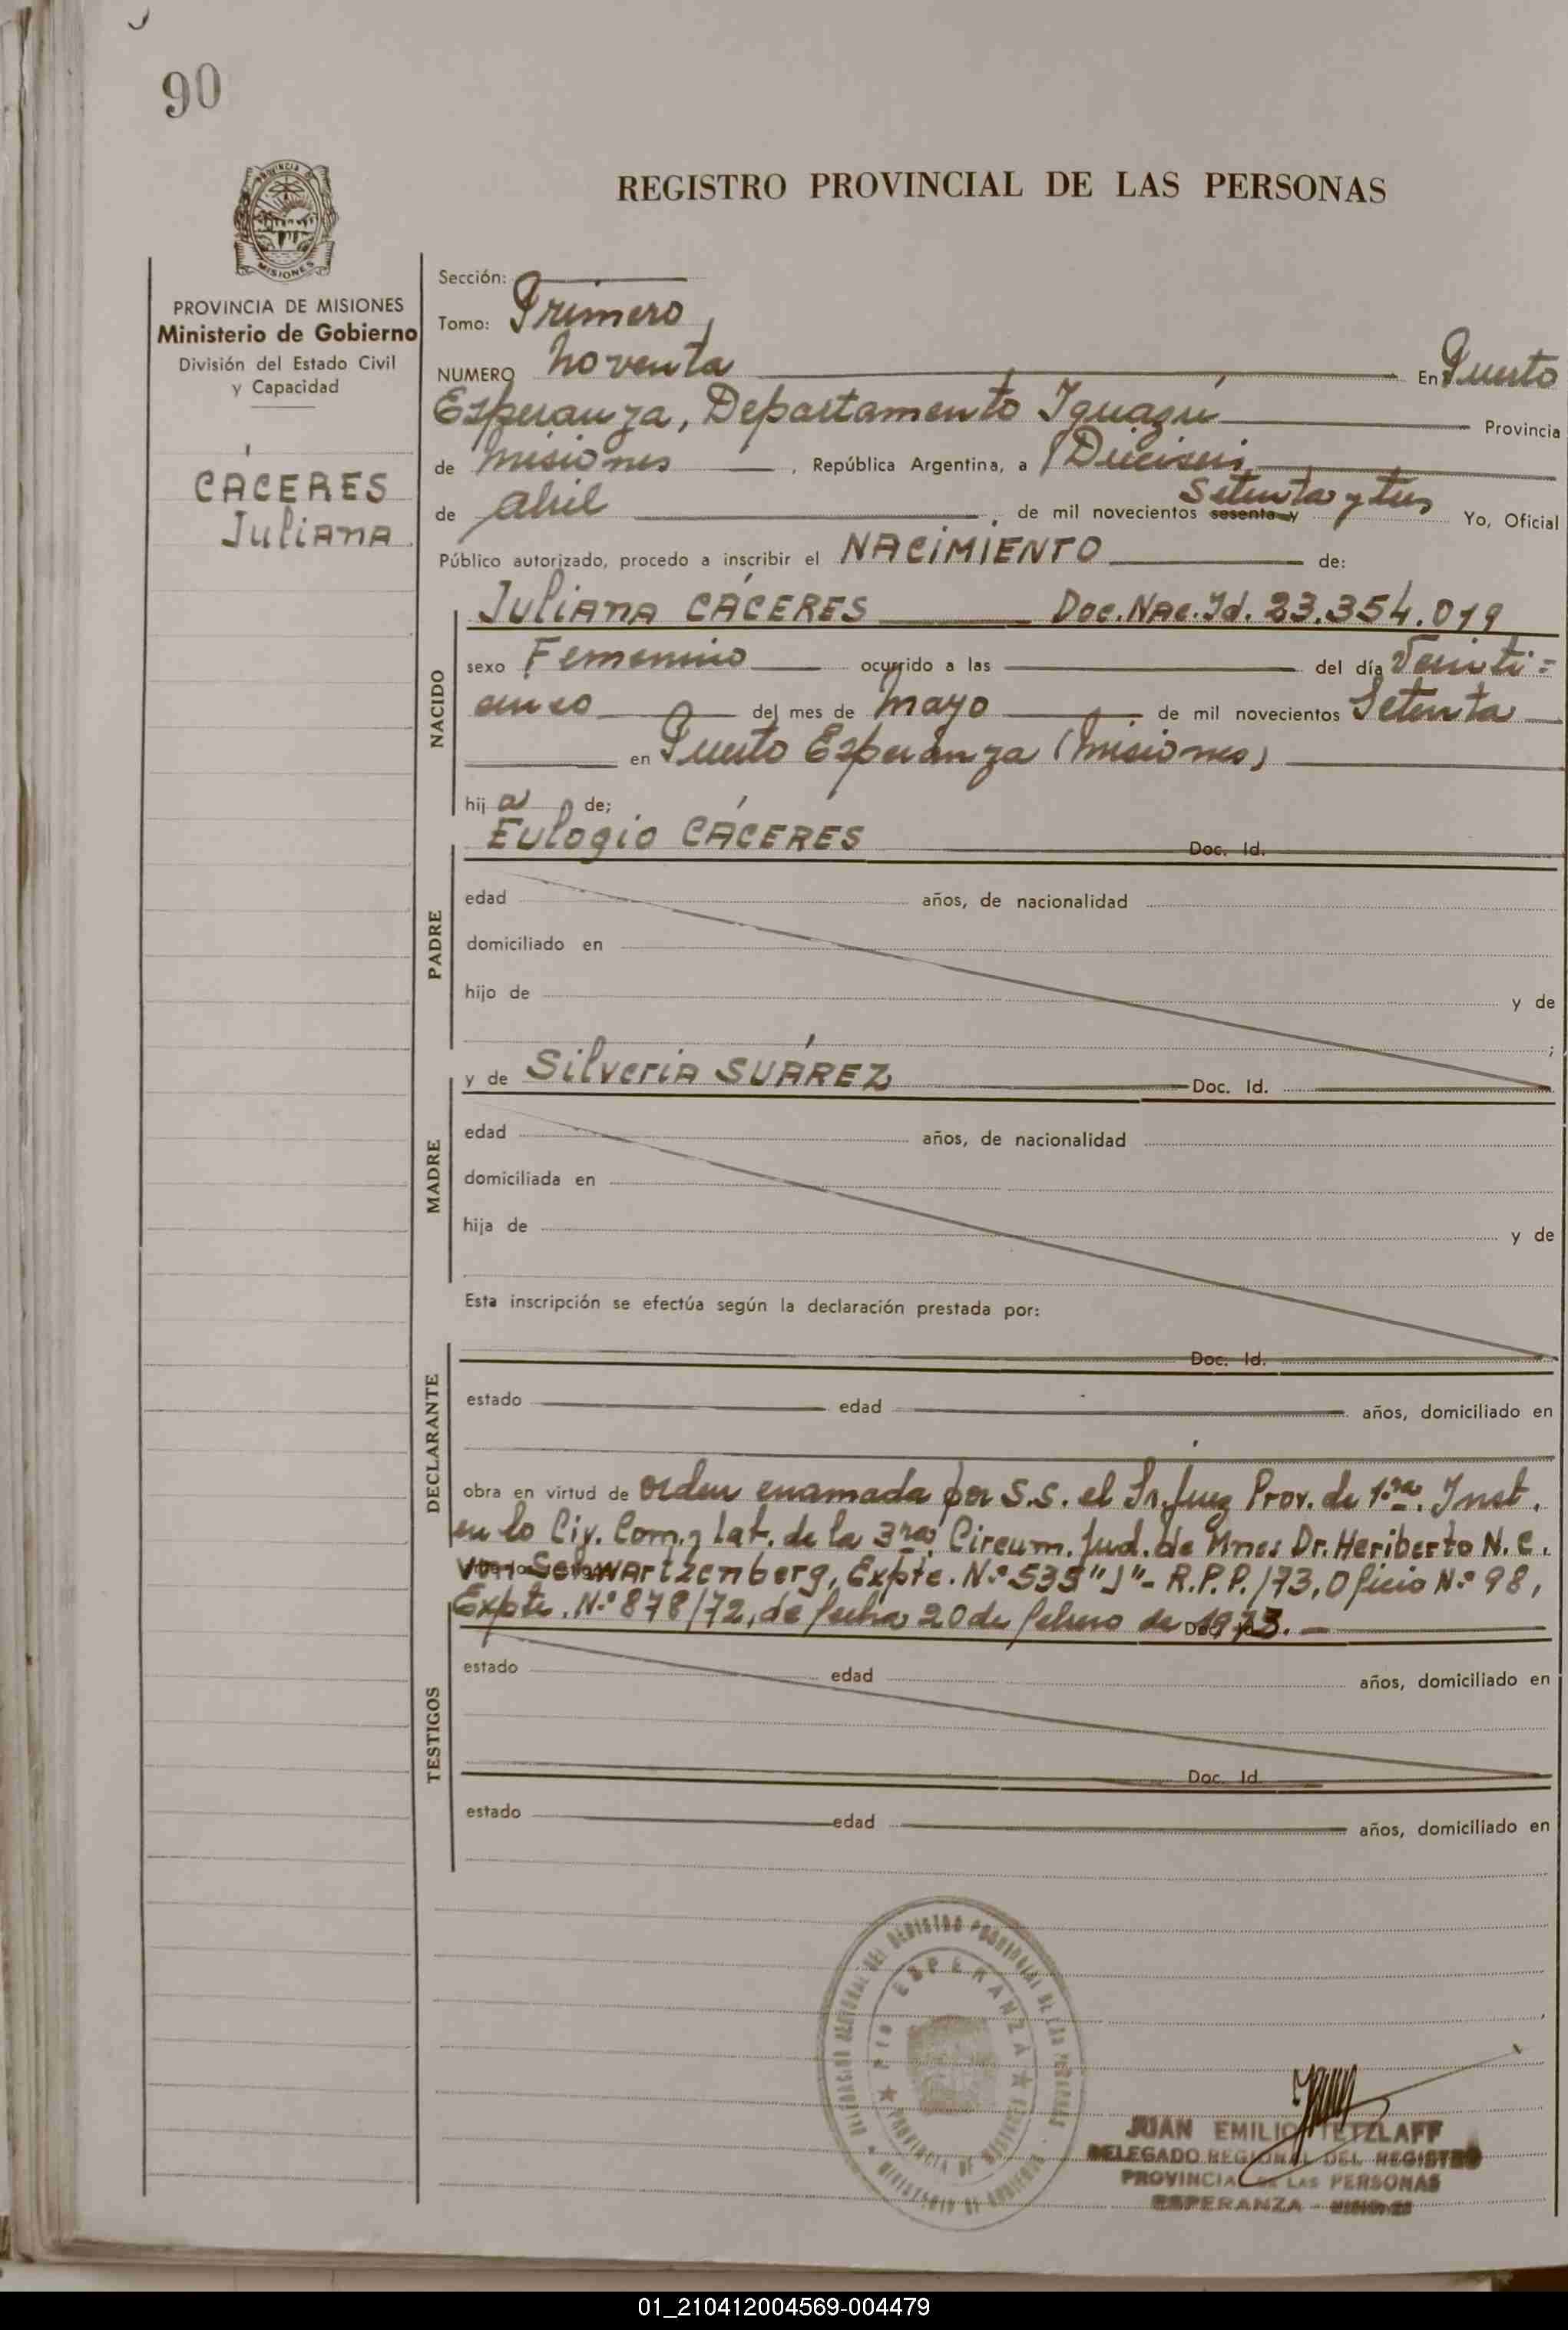 90
REGISTRO PROVINCIAL DE LAS PERSONAS
PROVINCIA DE
MISIONES
PROVINCIA DE MISIONES
Ministerio de Gobierno
División del Estado Civil
y Capacidad
CÁCERES
Juliana
Sección:
Tomo: Primero,
NUMERO Noventa En Puerto
Esperanza, Departamento Iguazú Provincia
de Misiones , República Argentina, a Dieciseis
de abril de mil novecientos sesenta y Setenta y tres Yo, Oficial
Público autorizado, procedo a inscribir el NACIMIENTO de:
NACIDO
Juliana CÁCERES Doc. Nac. Id. 23.354.019
sexo Femenino ocurrido a las del día Veinti=
cinco del mes de Mayo de mil novecientos Setenta
en Puerto Esperanza (Misiones)
hij a de;
PADRE
Eulogio CÁCERES Doc. Id.
edad años, de nacionalidad
domiciliado en
hijo de y de
;
MADRE
y de Silveria SUÁREZ Doc. Id.
edad años, de nacionalidad
domiciliada en
hija de y de
Esta inscripción se efectúa según la declaración prestada por:
DECLARANTE
Doc. Id.
estado edad años, domiciliado en
obra en virtud de orden enamada por S.S. el Sr. Juez Prov. de 1ra. Inst.
en lo Civ. Com. y Lab. de la 3ra. Circum. Jud. de Mnes Dr. Heriberto N. C.
von Schwartzenberg, Expte. N° 535 "J"- R.P.P./73, Oficio N° 98,
Expte. N° 878/72, de fecha 20 de febrero de 1973. -
TESTIGOS
estado edad años, domiciliado en
Doc. Id.
estado edad años, domiciliado en
DELEGACION REGIONAL DEL REGISTRO PROVINCIAL DE LAS PERSONAS
PTO ESPERANZA
PROVINCIA DE MISIONES
MINISTERIO DE GOBIERNO
JUAN EMILIO TETZLAFF
DELEGADO REGIONAL DEL REGISTRO
PROVINCIAL DE LAS PERSONAS
ESPERANZA - MISIONES
01_210412004569-004479